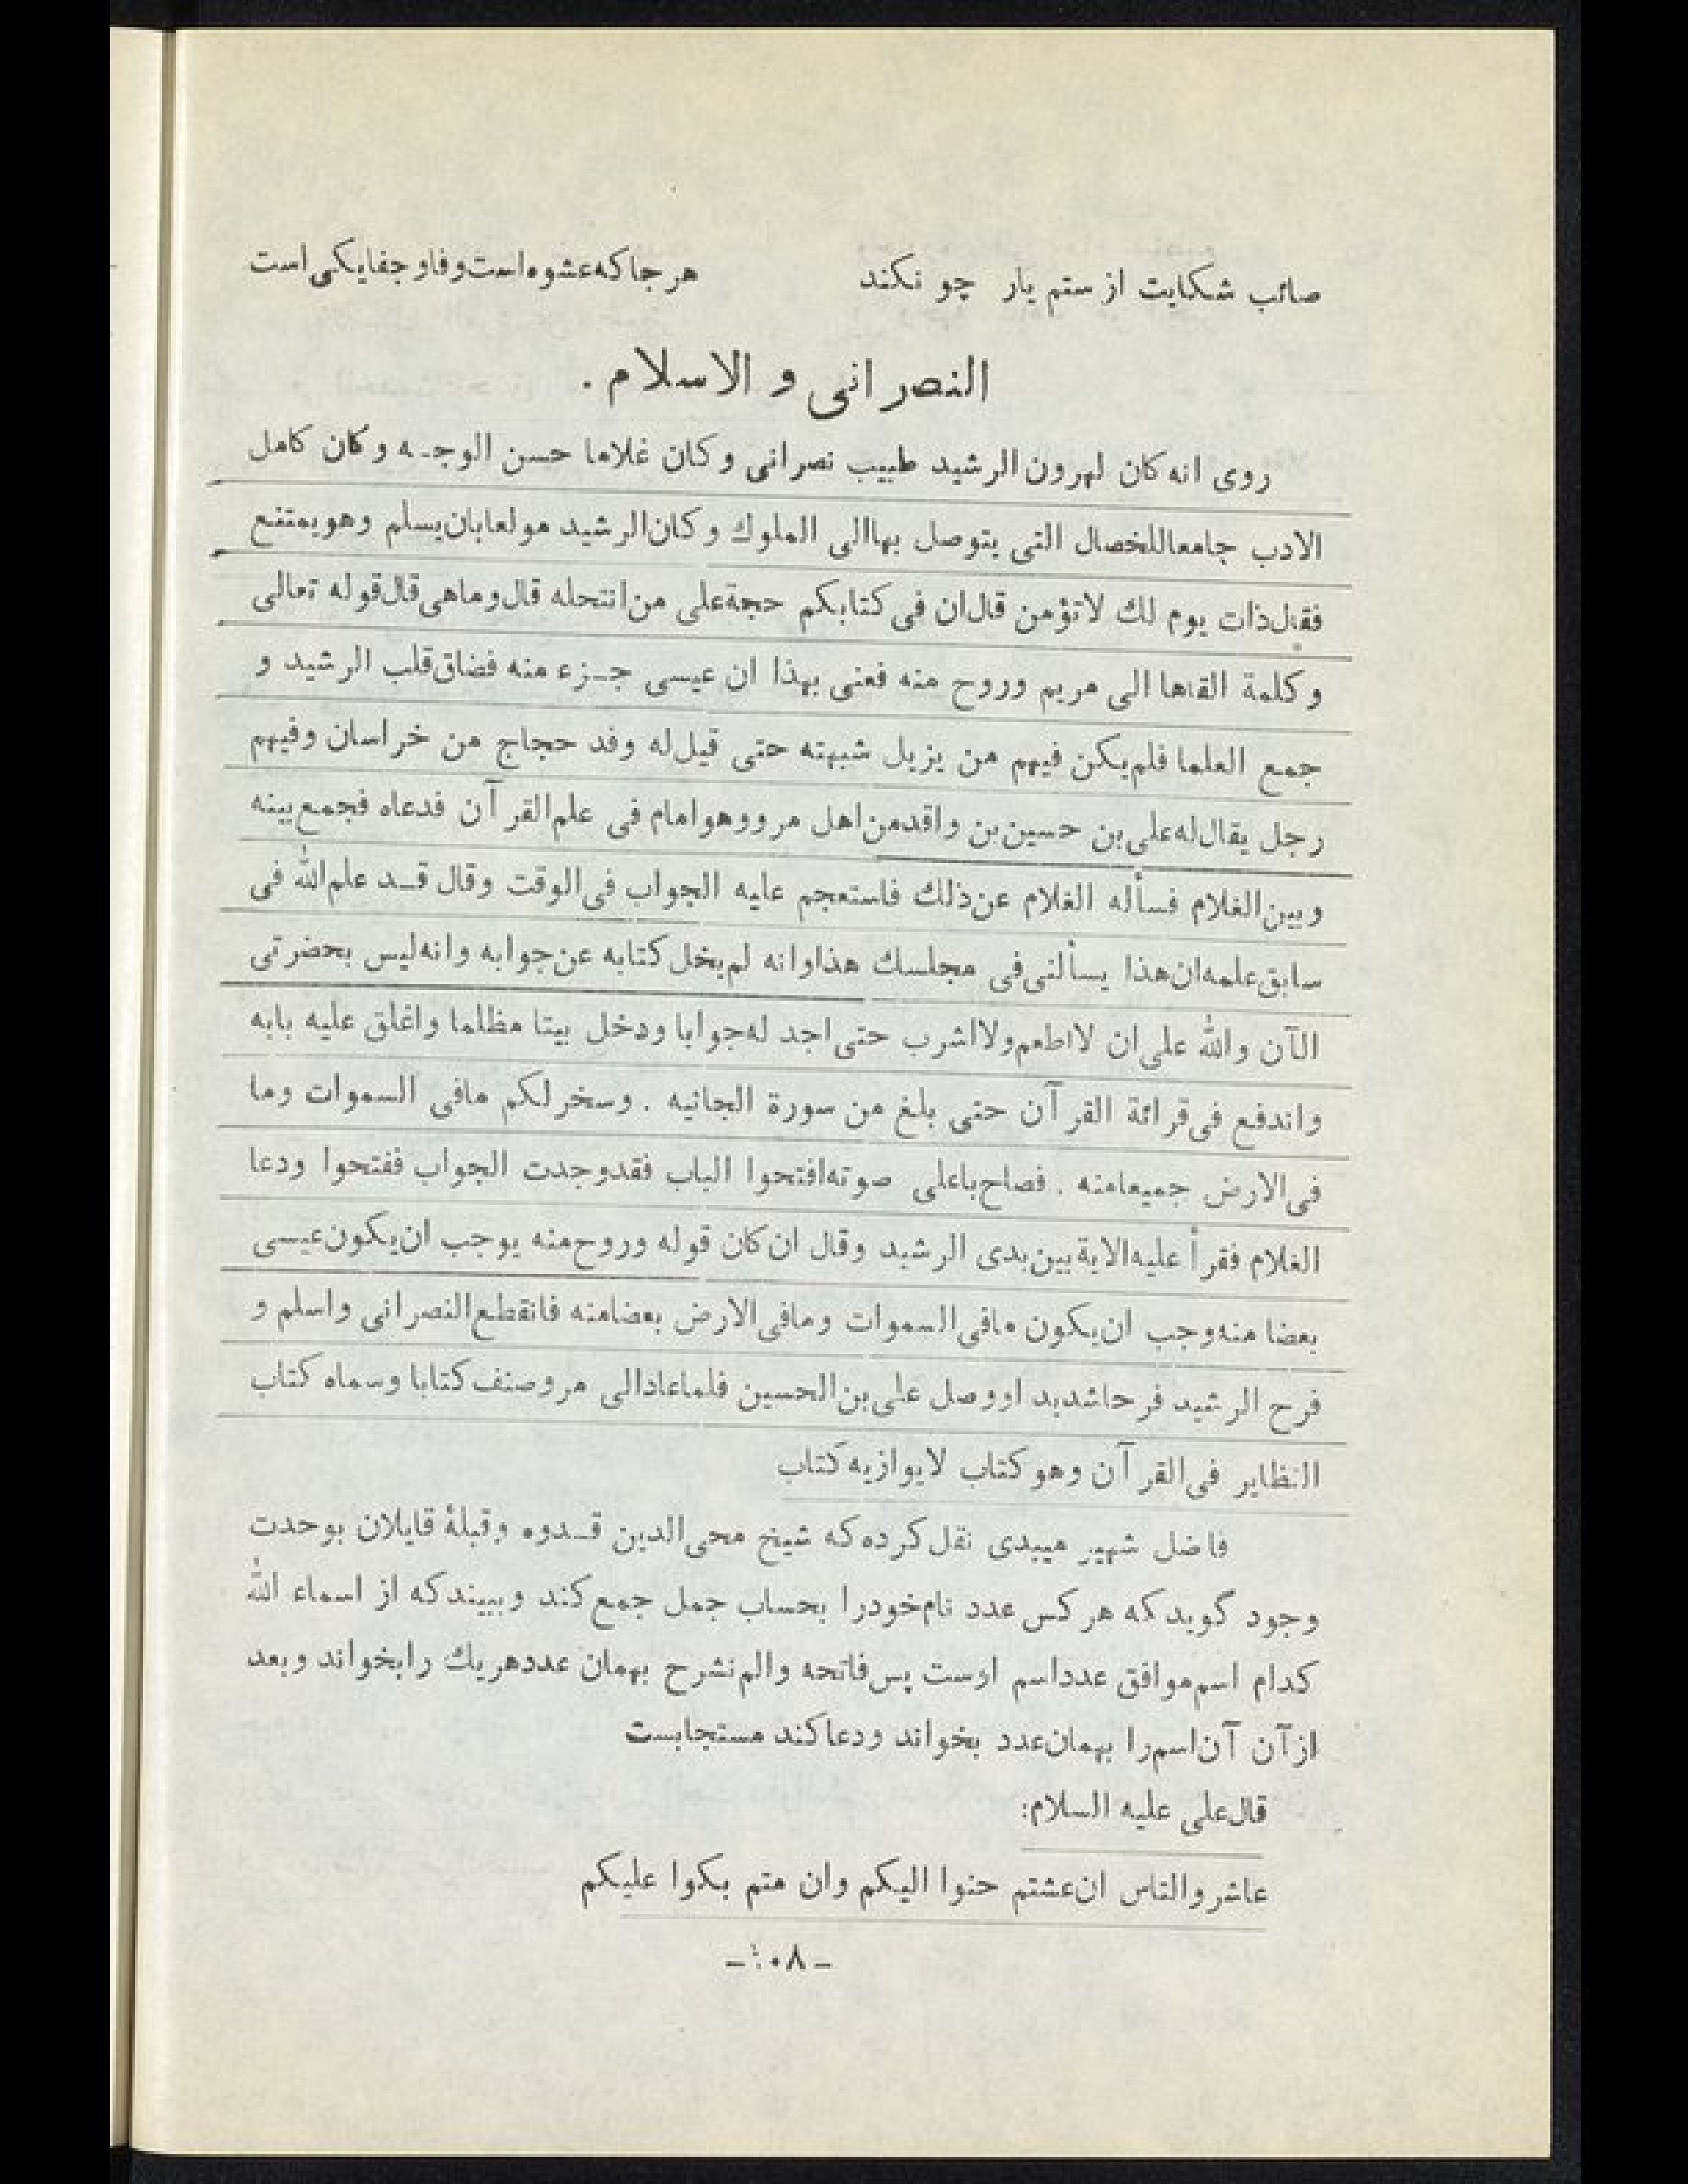 صائب شکایت از ستم یار چو نکند هر جا که عشوه است وفا و جفا یکی است
النصرانی و الاسلام .
روی انه کان لهرون الرشید طبیب نصرانی و کان غلاما حسن الوجه و کان کامل
الادب جامعا للخصال التی یتوصل بها الی الملوك و کان الرشید مولعا بان یسلم و هو یمتنع
فقال ذات یوم لك لاتؤمن قال ان فی کتابکم حجة علی من انتحله قال و ما هی قال قوله تعالی
و کلمة القاها الی مریم و روح منه فعنی بهذا ان عیسی جزء منه فضاق قلب الرشید و
جمع العلما فلم یکن فیهم من یزیل شبهته حتی قیل له وفد حجاج من خراسان و فیهم
رجل یقال له علی بن حسین بن واقد من اهل مرو و هو امام فی علم القرآن فدعاه فجمع بینه
و بین الغلام فسأله الغلام عن ذلك فاستعجم علیه الجواب فی الوقت و قال قد علم الله فی
سابق علمه ان هذا یسألنی فی مجلسك هذا و انه لم یخل کتابه عن جوابه و انه لیس بحضرتی
الآن و الله علی ان لا اطعم و لا اشرب حتی اجد له جوابا و دخل بیتا مظلما و اغلق علیه بابه
و اندفع فی قرائة القرآن حتی بلغ من سورة الجاثیه . و سخر لکم مافی السموات و ما
فی الارض جمیعا منه . فصاح باعلی صوته افتحوا الباب فقد وجدت الجواب ففتحوا و دعا
الغلام فقرأ علیه الایة بین یدی الرشید و قال ان کان قوله و روح منه یوجب ان یکون عیسی
بعضا منه وجب ان یکون مافی السموات و مافی الارض بعضا منه فانقطع النصرانی و اسلم و
فرح الرشید فرحا شدیدا و وصل علی بن الحسین فلما عاد الی مرو صنف کتابا و سماه کتاب
النظایر فی القرآن و هو کتاب لا یوازیه کتاب
فاضل شهیر میبدی نقل کرده که شیخ محی الدین قدوه و قبلهٔ قایلان بوحدت
وجود گوید که هر کس عدد نام خود را بحساب جمل جمع کند و ببیند که از اسماء الله
کدام اسم موافق عدد اسم اوست پس فاتحه و الم نشرح بهمان عدد هر یك را بخواند و بعد
از آن آن اسم را بهمان عدد بخواند و دعا کند مستجابست
قال علی علیه السلام:
عاشر والناس ان عشتم حنوا الیکم وان متم بکوا علیکم